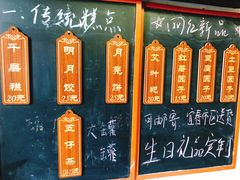 一.传统糕点
千层糕
20元
明月饺
25元
月亮饼
25元
五仔茶
大罐
小罐
女儿红新品
艾叶粑
红薯圆子
豆腐圆子
土豆圆子
20元
可邮寄
宜春市区送货
生日礼品定制